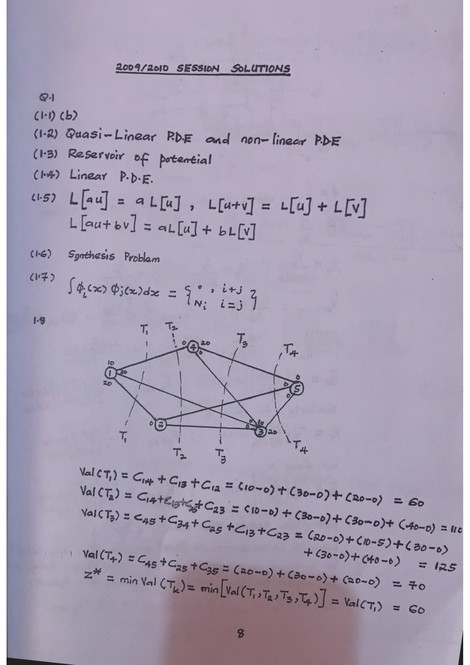 2009/2010 SESSION SOLUTIONS
Q.1
(1.1) (b)
(1.2) Quasi-Linear P.D.E and non-linear P.D.E
(1.3) Reservoir of potential
(1.4) Linear P.D.E.
(1.5) L[au] = aL[u], L[u+v] = L[u] + L[v]
L[au+bv] = aL[u] + bL[v]
(1.6) Synthesis Problem
(1.7) ∫ϕi(x) ϕj(x)dx = { 0, i≠j
Ni i=j }
1.8
T1 T2 T3 T4
10 20 20
1 4 5
2 3
T1 T2 T3 T4
Val(T1) = C14 + C13 + C12 = (10-0) + (30-0) + (20-0) = 60
Val(T2) = C14 + C13 + C25 + C23 = (10-0) + (30-0) + (30-0) + (40-0) = 110
Val(T3) = C45 + C34 + C25 + C13 + C23 = (20-0) + (10-5) + (30-0)
+ (30-0) + (40-0) = 125
Val(T4) = C45 + C25 + C35 = (20-0) + (30-0) + (20-0) = 70
Z* = min Val(Tk) = min[Val(T1, T2, T3, T4)] = Val(T1) = 60
8